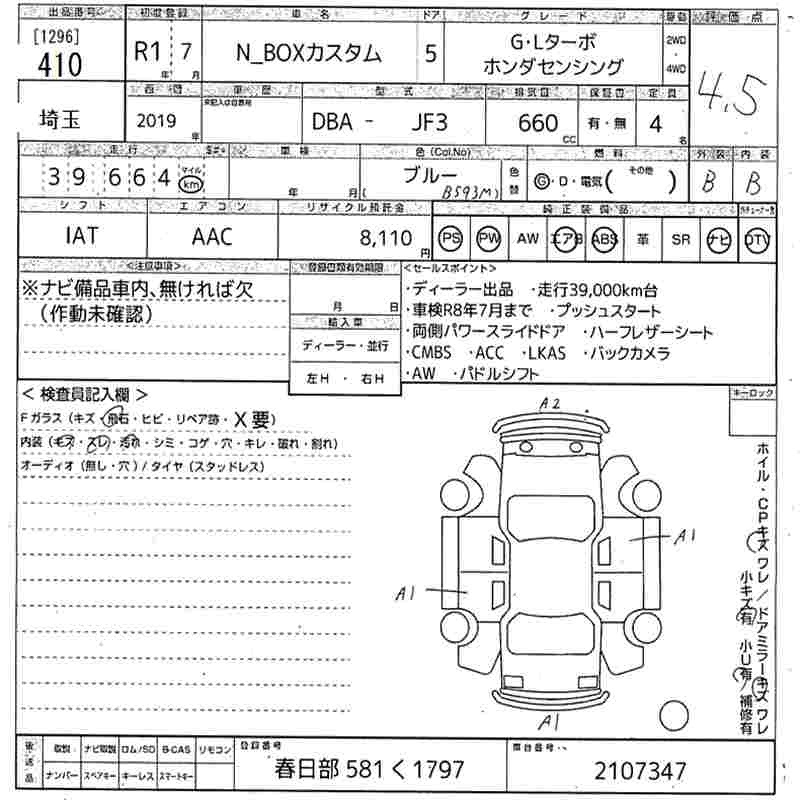 出品番号 初度登録 車名 ドア グレード 駆動 評価点
[1296] 410 R1 年 7 月 N_BOXカスタム 5 G・Lターボ ホンダセンシング 2WD ・ 4WD 4.5
西暦 車歴 型式 排気量 保証書 定員
埼玉 2019 年 DBA - JF3 660 CC 有・無 4 名
走行 車検 色(Col.No) 燃料 外装 内装
39,664 マイル km 年 月 ブルー (B593M) 色替 G・D・電気 (その他) B B
シフト エアコン リサイクル預託金 純正装備品
IAT AAC 8,110 円 PS PW AW エアB ABS 革 SR ナビ DTV
<注意事項> 登録書類有効期限 <セールスポイント>
※ナビ備品車内、無ければ欠
(作動未確認)
月 日
輸入車
ディーラー・並行
左H ・ 右H
・ディーラー出品 ・走行39,000km台
・車検R8年7月まで ・プッシュスタート
・両側パワースライドドア ・ハーフレザーシート
・CMBS ・ACC ・LKAS ・バックカメラ
・AW ・パドルシフト
<検査員記入欄>
Fガラス(キズ・飛石・ヒビ・リペア跡・X要)
内装(キズ・スレ・汚れ・シミ・コゲ・穴・キレ・破れ・割れ)
オーディオ(無し・穴)/タイヤ(スタッドレス)
キーロック
A2
A1
A1
A1
ホイル・CPキズ ワレ/ドアミラーキズ ワレ
小キズ有 小U有/補修有
後送品 取説 ナビ取説 ロム/SD B-CAS リモコン 登録番号 車台番号
ナンバー スペアキー キーレス スマートキー 春日部 581 く 1797 2107347